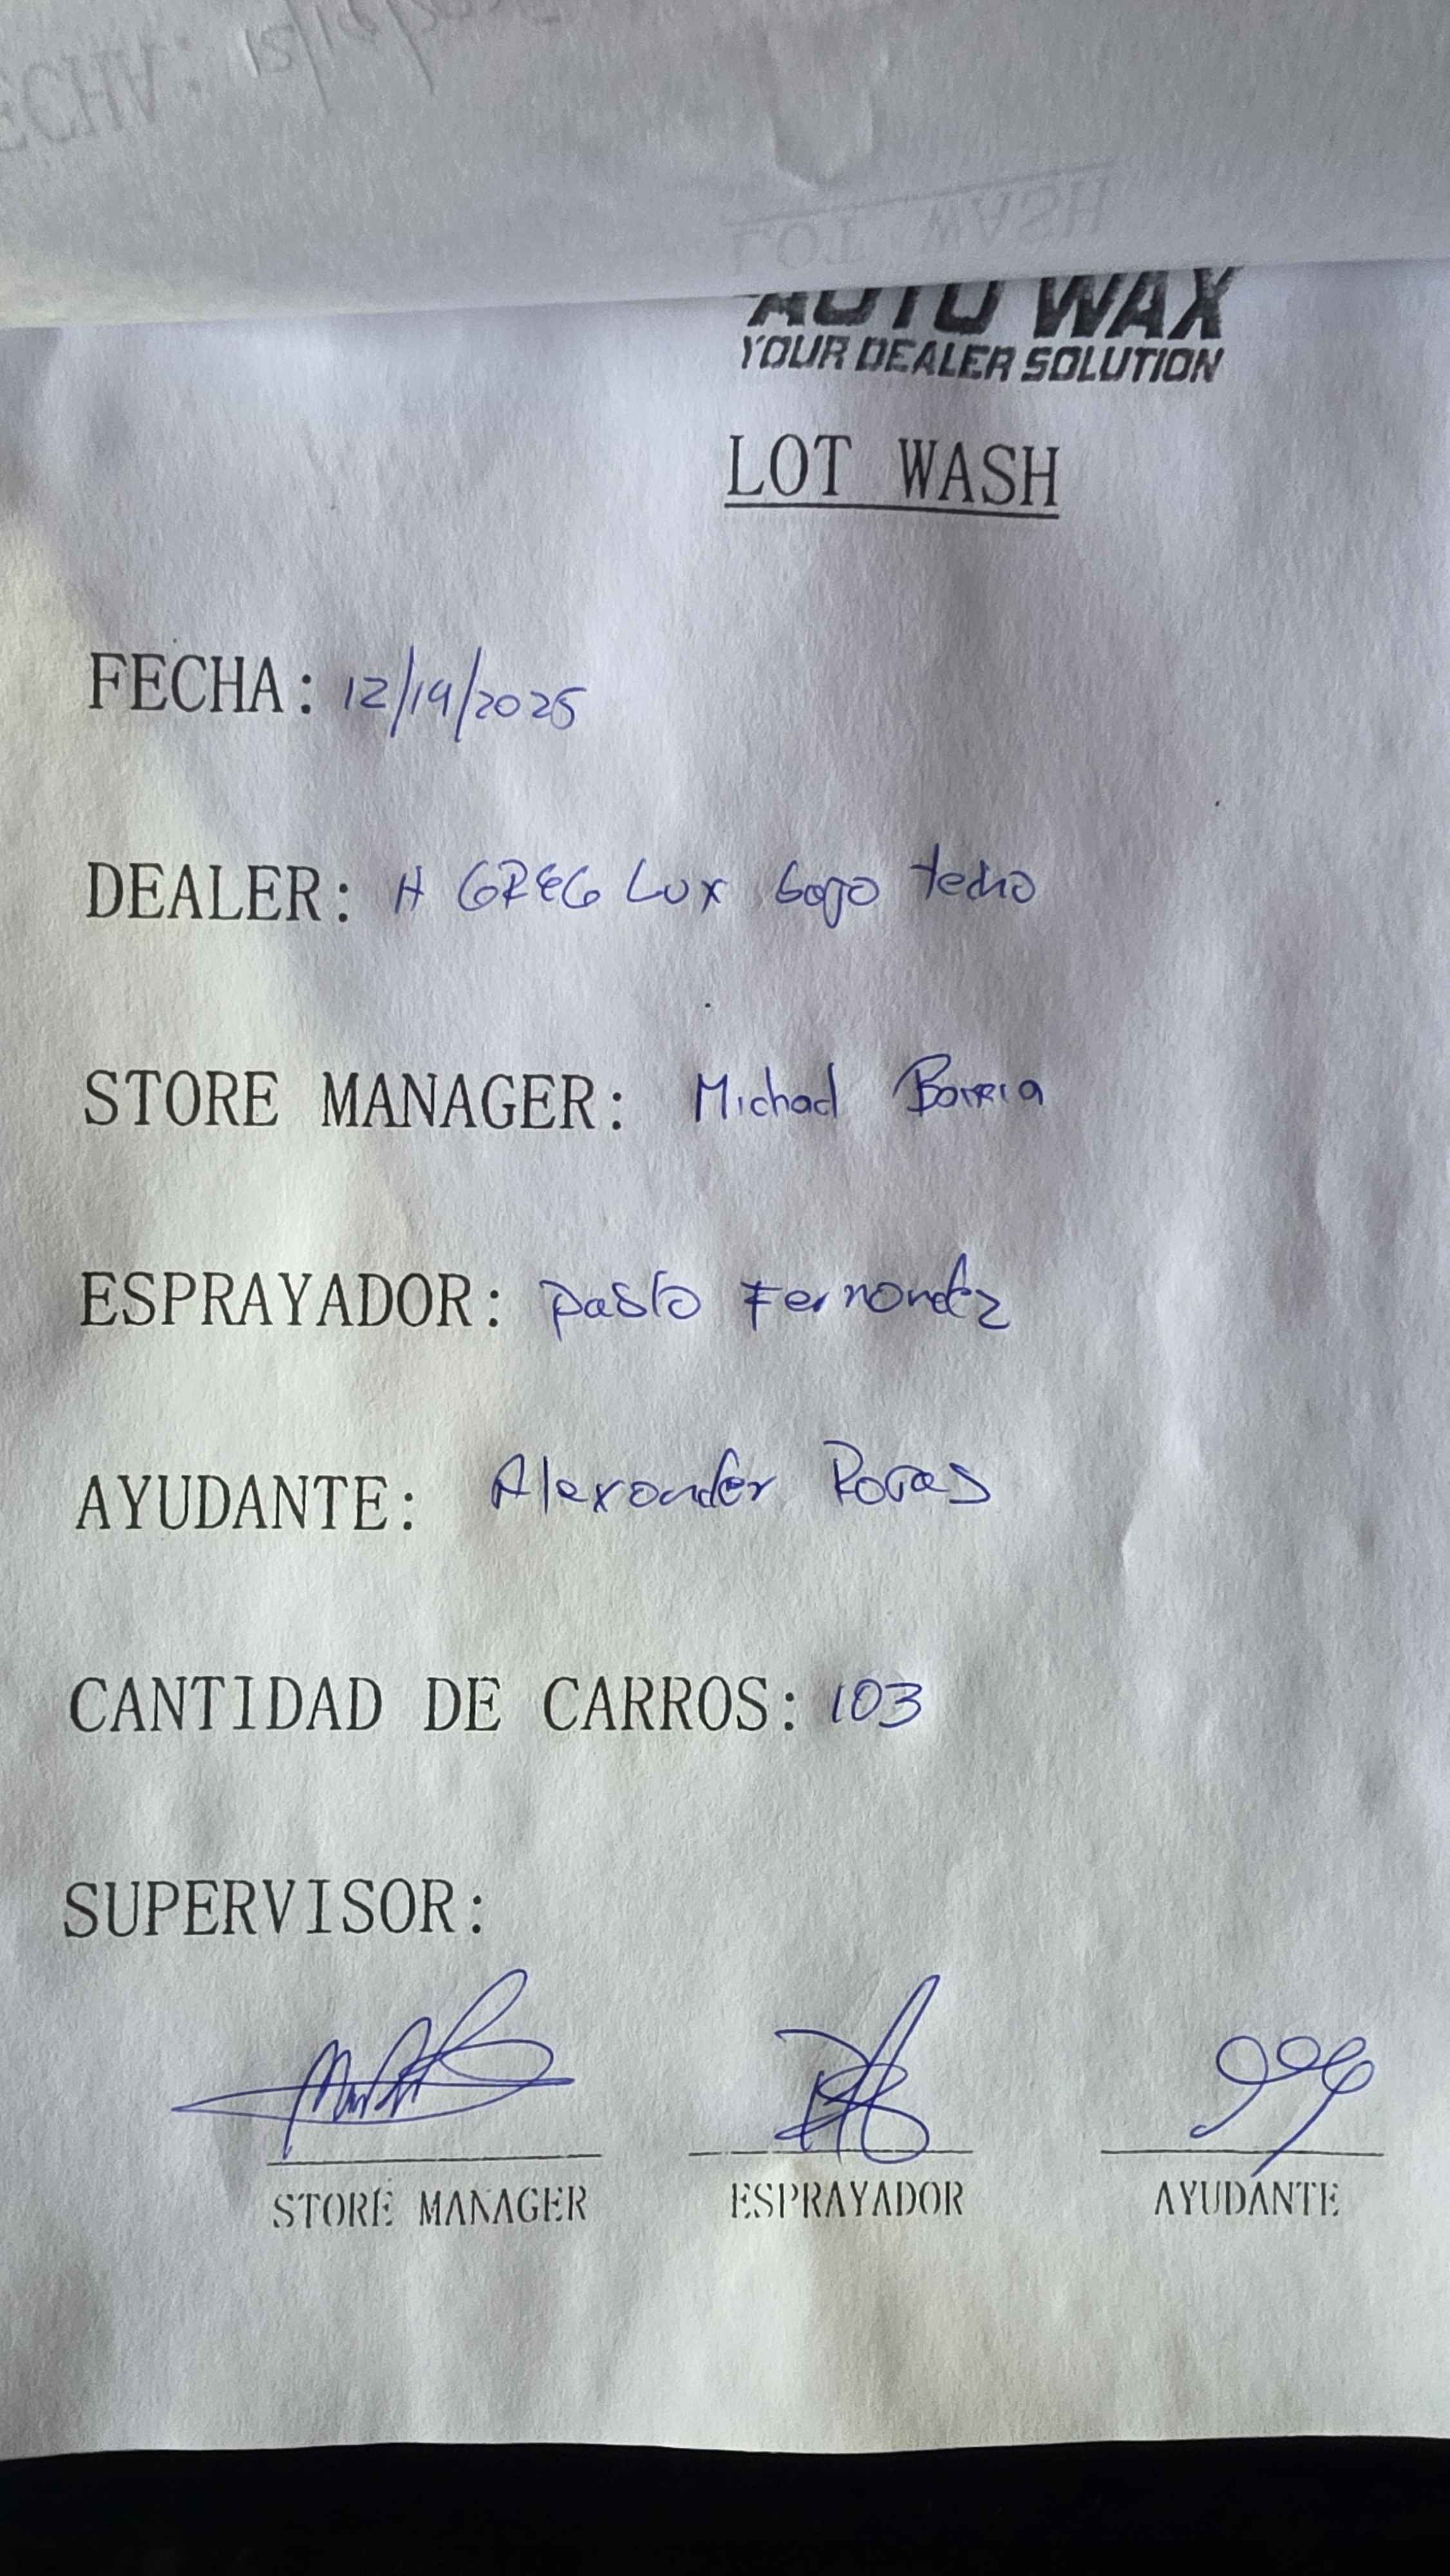 FECHA: 12/19/202
LOT WASH
AUTO WAX
YOUR DEALER SOLUTION
LOT WASH
FECHA: 12/19/2025
DEALER: H GREG Lux bajo techo
STORE MANAGER: Michael Barria
ESPRAYADOR: Pablo Fernandez
AYUDANTE: Alexander Rojas
CANTIDAD DE CARROS: 103
SUPERVISOR:
STORE MANAGER ESPRAYADOR AYUDANTE